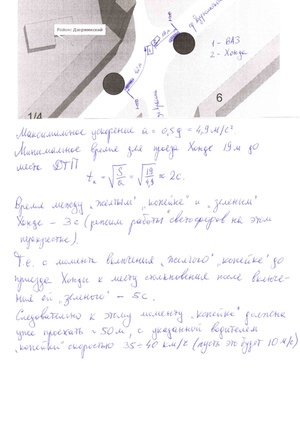 Район Дзержинский
р. Вуркинский
1 - ВАЗ
2 - Хонда
1/4
6
Максимальное ускорение a = 0,5g = 4,9 м/с²
Минимальное время для проезда Хонде 19 м до
места ДТП
tₓ = √S/a = √19/4,9 ≈ 2с.
Время между „желтым" „копейке" и „зеленым"
Хонде - 3с (режим работы светофоров на этом
перекрестке).
Т.е. с момента включения „желтого" „копейке" до
приезда Хонды к месту столкновения после включе-
ния ей „зеленого" - 5с.
Следовательно к этому моменту „копейка" должна
уже проехать ~ 50м, с указанной водителем
„копейки" скоростью 35÷40 км/ч (пусть это будет 10 м/с)